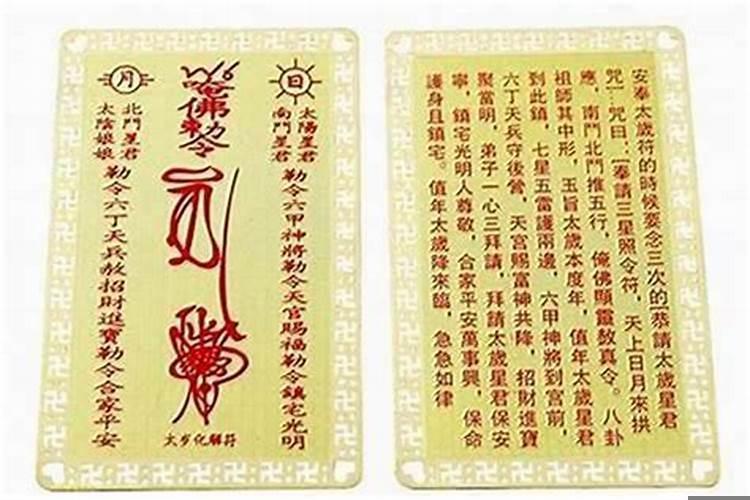 日
太陽星君
南鬥星君
勒令六甲神將勒令天官賜福勒令鎮宅光明
唵佛勅令
太岁化解符
月
北鬥星君
太陰娘娘
勒令六丁天兵敕招財進寶勒令合家平安
安奉太歲符的時候要念三次的[恭請太歲星君
咒]:咒曰:[奉請三星照令符,天上日月來拱
應,南鬥北鬥推五行,俺佛顯靈敎真令。八卦
祖師其中形,玉旨太歲本度年,值年太歲星君
到此鎮,七星五雷護兩邊,六甲神將到宮前,
六丁天兵守後營,天官賜富神共降,招財進寶
聚當明,弟子一心三拜請,拜請太歲星君保安
寧,鎮宅光明人尊敬,合家平安萬事興,保命
護身且鎮宅。值年太歲降來臨,急急如律